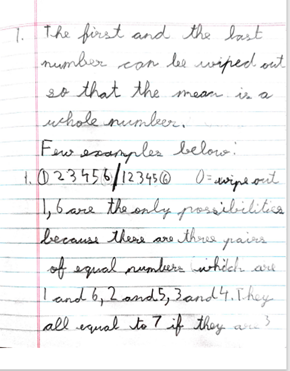 1. The first and the last
number can be wiped out
so that the mean is a
whole number.
Few examples below:
1. ① 2 3 4 5 6 / 1 2 3 4 5 ⑥ 0 = wipe out
1, 6 are the only possibilities
because there are three pairs
of equal numbers which are
1 and 6, 2 and 5, 3 and 4. They
all equal to 7 if they are